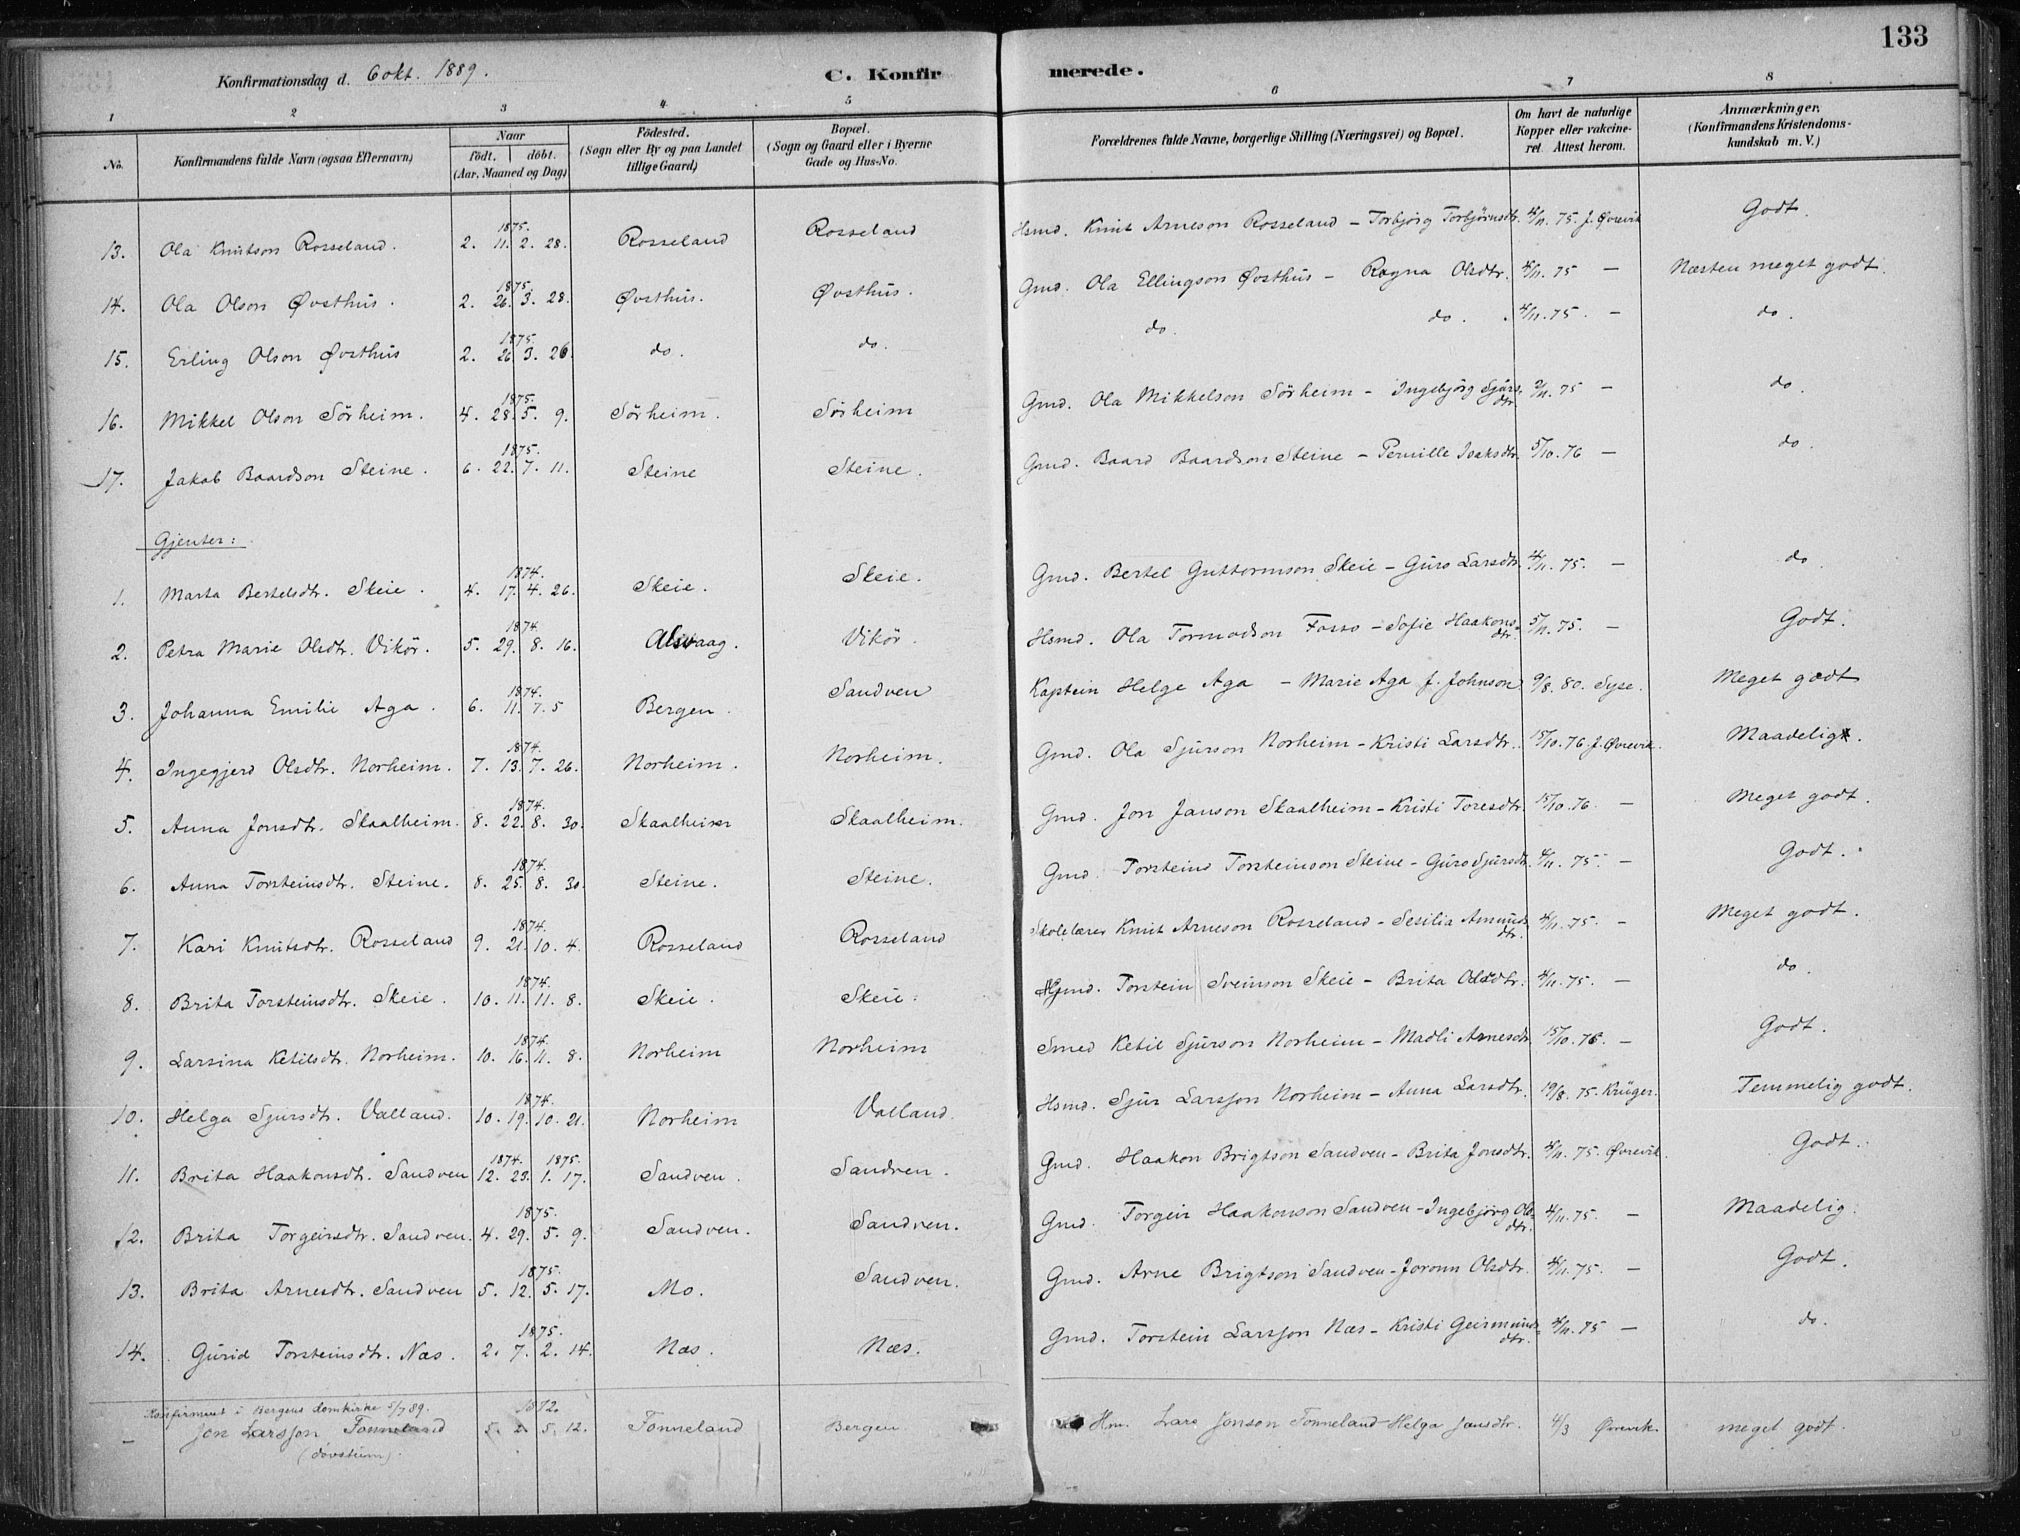 133
Konfirmationsdag d. 6 okt. 1889. C. Konfir merede.
1 2 3 4 5 6 7 8
No. Konfirmandens fulde Navn (ogsaa Efternavn) Naar født. døbt. (Aar, Maaned og Dag) Fødested. (Sogn eller By og paa Landet tillige Gaard) Bopæl. (Sogn og Gaard eller i Byerne Gade og Hus-No. Forældrenes fulde Navne, borgerlige Stilling (Næringsvei) og Bopæl. Om havt de naturlige Kopper eller vakcineret. Attest herom. Anmærkninger. (Konfirmandens Kristendomskundskab m. V.)
13. Ola Knutson Rosseland. 1875. 2. 11. 2. 28. Rosseland Rosseland Hsmd. Knut Arneson Rosseland - Torbjørg Torbjørnsdtr. 4/11. 75. J. Øvrevik Godt.
14. Ola Olson Øvsthus. 1875. 2. 26. 3. 28. Øvsthus. Øvsthus. Gmd. Ola Ellingson Øvsthus - Ragna Olsdtr. 4/11. 75 — Næsten meget godt.
15. Erling Olson Øvsthus 1875. 2. 26. 3. 26. do. do. do. do. 4/11. 75. — do.
16. Mikkel Olson Sørheim. 1875. 4. 28. 5. 9. Sørheim. Sørheim Gmd. Ola Mikkelson Sørheim - Ingebjørg Sjursdtr. 2/11. 75 — do.
17. Jakob Baardson Steine. 1875. 6. 22. 7. 11. Steine Steine. Gmd. Baard Baardson Steine - Pernille Isaksdtr. 5/10. 76 — do.
Gjenter:
1. Marta Bertelsdtr. Skeie. 1874. 4. 17. 4. 26. Skeie. Skeie. Gmd. Bertel Guttormson Skeie - Guro Larsdtr. 4/11. 75. — do
2. Petra Marie Olsdtr. Vikør. 1874. 5. 29. 8. 16. Alsvaag. Vikør. Hsmd. Ola Tormodson Fosso - Sofie Haakonsdtr. 5/11. 75. — Godt.
3. Johanna Emilie Aga. 1874. 6. 11. 7. 5 Bergen. Sandven Kaptein Helge Aga - Marie Aga f. Johnson 9/8. 80. Syse. Meget godt
4. Ingegjerd Olsdtr. Norheim. 1874. 7. 13. 7. 26. Norheim. Norheim. Gmd. Ola Sjurson Norheim - Kristi Larsdtr. 15/10. 76 J. Øvrevik. Maadelig.
5. Anna Jonsdtr. Skaalheim. 1874. 8. 22. 8. 30. Skaalheim Skaalheim. Gmd. Jon Janson Skaalheim - Kristi Toresdtr. 15/10. 76. — Meget godt.
6. Anna Torsteinsdtr. Steine. 1874. 8. 25. 8. 30. Steine. Steine. Gmd. Torstein Torsteinson Steine - Guro Sjursdtr. 4/11. 75. — Godt.
7. Kari Knutsdtr. Rosseland 1874. 9. 21. 10. 4. Rosseland Rosseland Skolelærer Knut Arneson Rosseland - Sesilia Amundsdtr. 4/11. 75. — Meget godt.
8. Brita Torsteinsdtr. Skeie. 1874. 10. 11. 11. 8. Skeie. Skeie. Gmd. Torstein Sveinson Skeie - Brita Olsdtr. 4/11. 75. — do.
9. Larsina Ketilsdtr. Norheim. 1874. 10. 16. 11. 8. Norheim Norheim Smed Ketil Sjurson Norheim - Madli Arnesdtr. 15/10. 76. — Godt.
10. Helga Sjursdtr. Valland. 1874. 10. 19. 10. 21. Norheim Valland. Hsmd. Sjur Larsson Norheim - Anna Larsdtr. 19/8. 75. Krüger. Temmelig godt.
11. Brita Haakonsdtr. Sandven 1874. 1875. 12. 23. 1. 17. Sandven. Sandven. Gmd. Haakon Brigtson Sandven - Brita Jonsdtr. 4/11. 75. Øvrevik. Godt.
12. Brita Torgeirsdtr. Sandven. 1875. 4. 29. 5. 9. Sandven. Sandven. Gmd. Torgeir Haakonson Sandven - Ingebjørg Olsdtr. 4/11. 75. — Maadelig.
13. Brita Arnesdtr. Sandven 1875. 5. 12. 5. 17. Mo. Sandven. Gmd. Arne Brigtson Sandven - Joronn Olsdtr. 4/11. 75. — Godt.
14. Gurid Torsteinsdtr. Næs. 1875. 2. 7. 2. 14. Næs. Næs. Gmd. Torstein Larsson Næs - Kristi Geirmundsdtr. 4/11. 75 — do.
Konfirmeret i Bergens Domkirke 5/7 89.
— Jon Larsson Tonneland 1872. 5. 2. 5. 12. Tonneland Bergen Hm. Lars Jonson Tonneland - Helga Jansdtr. 4/3 Øvrevik. meget godt.
(døvstum).